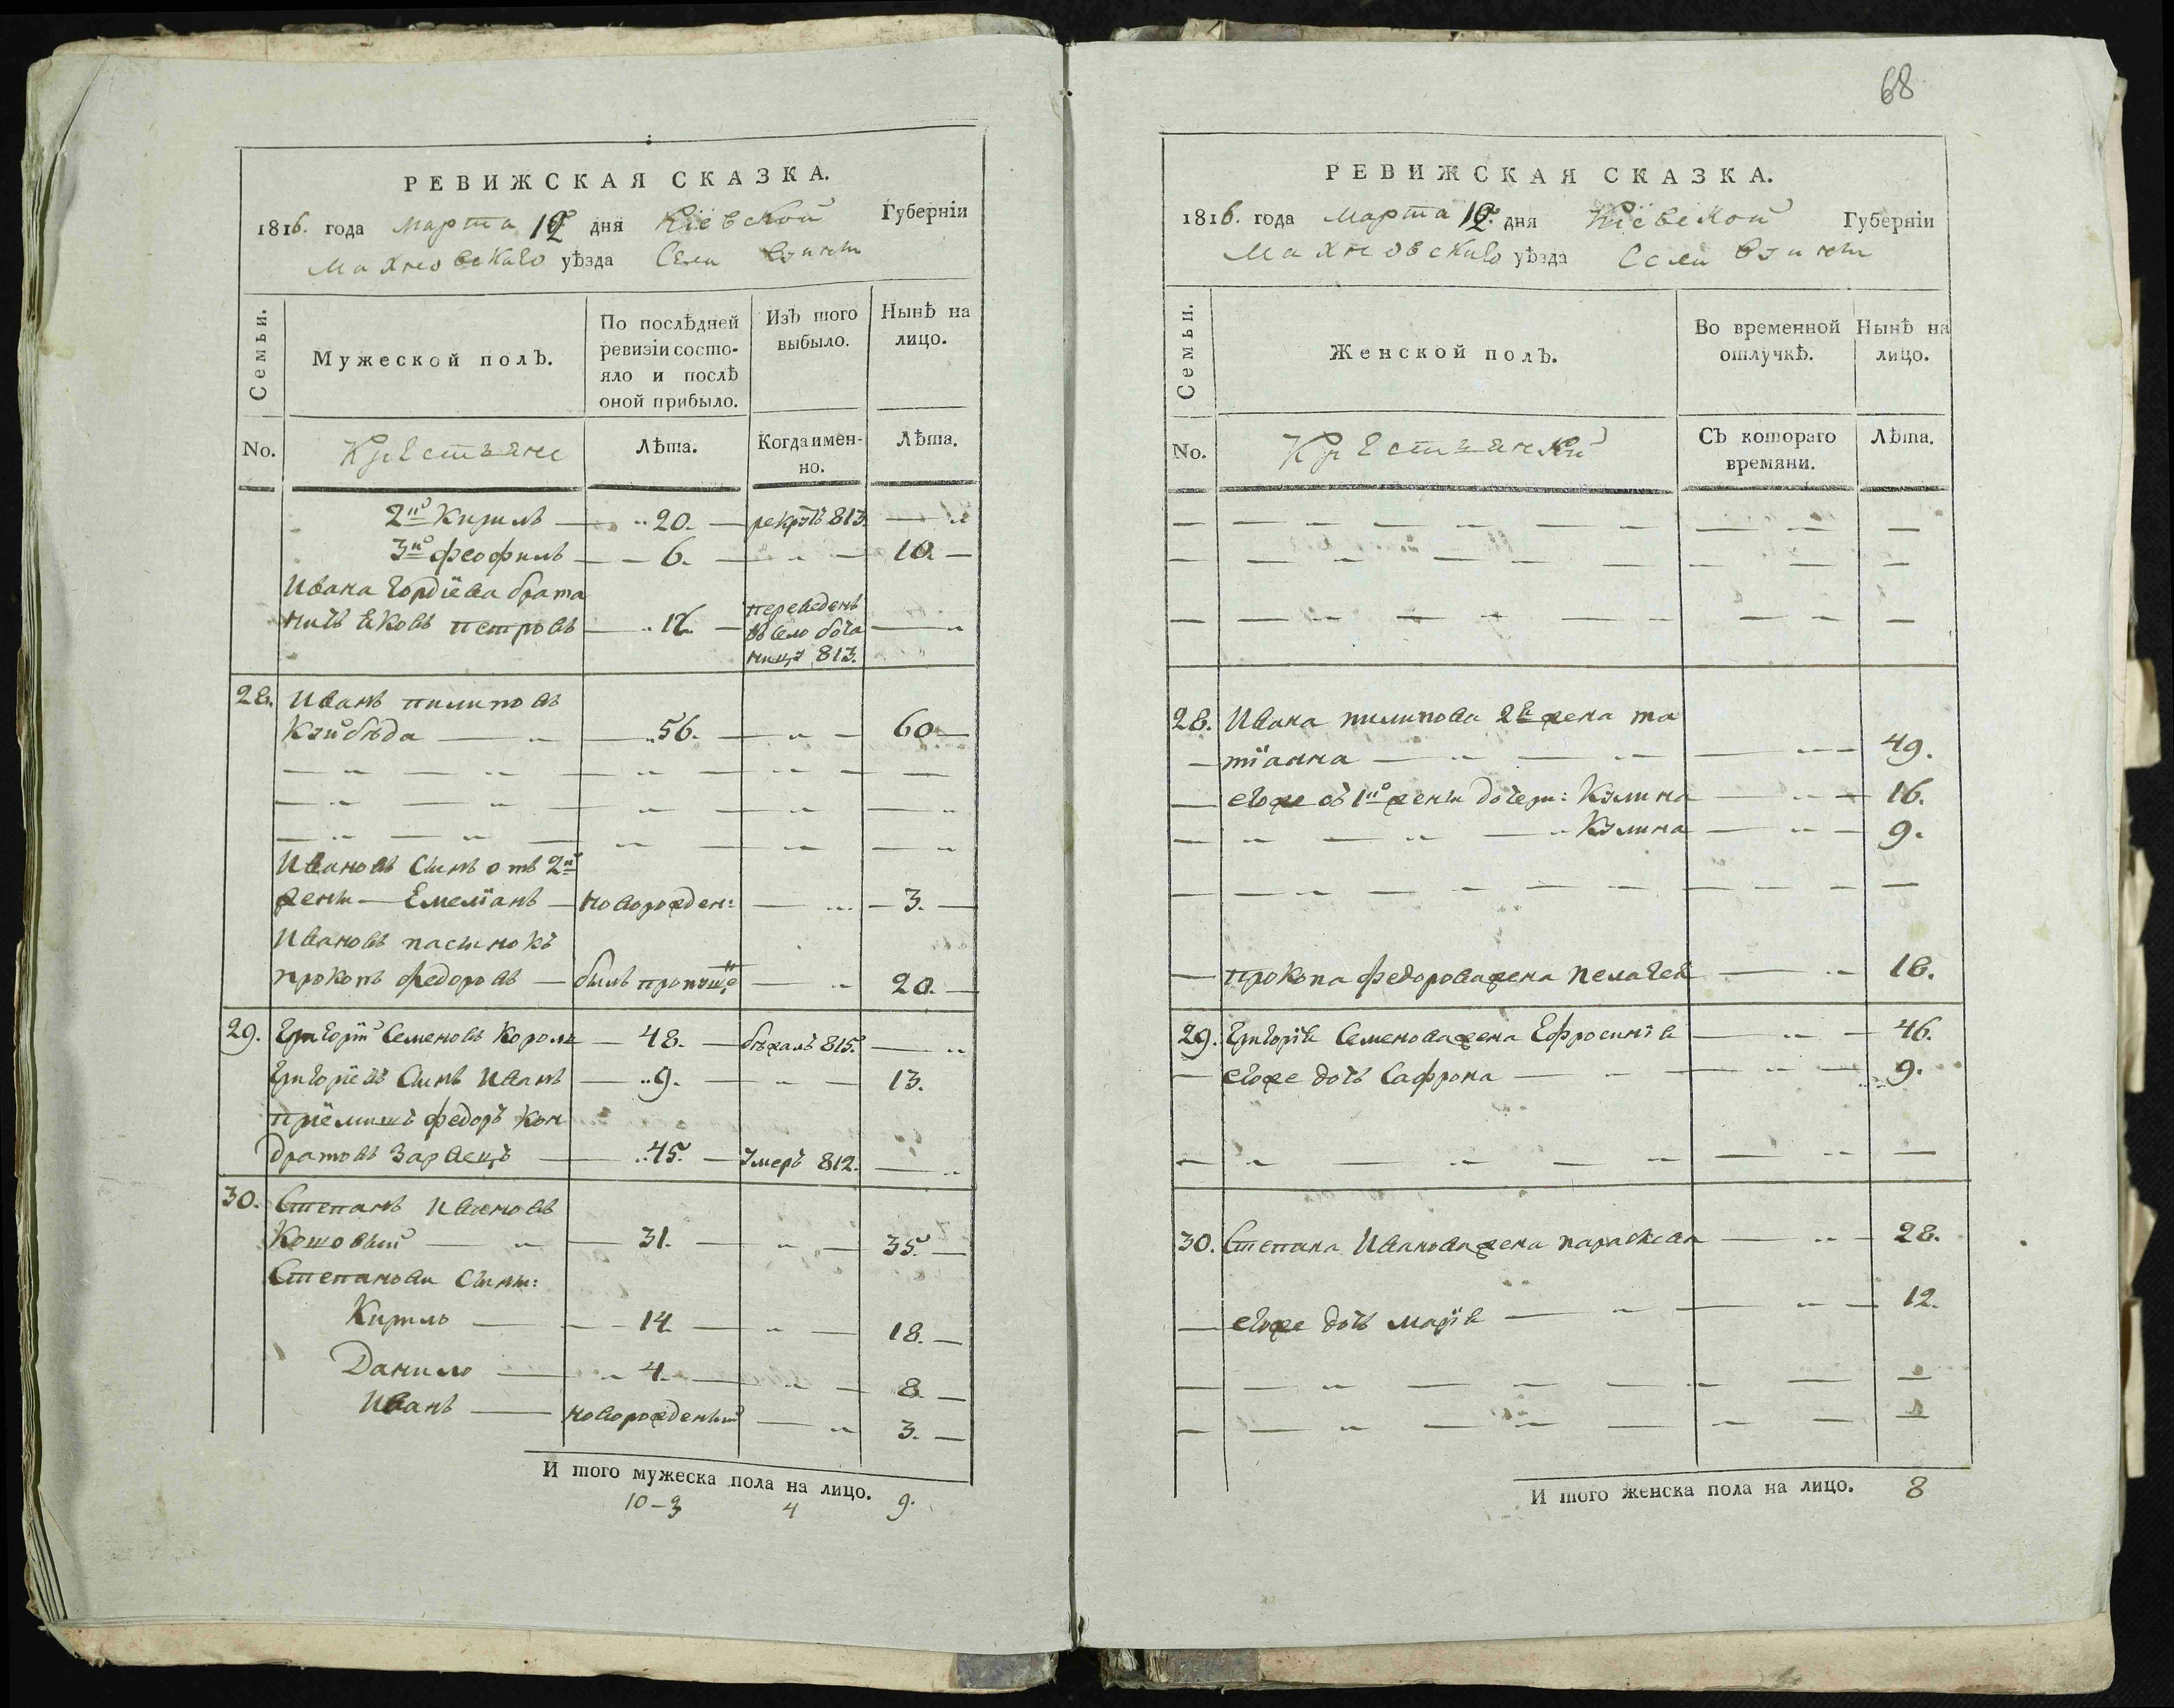 РЕВИЖСКАЯ СКАЗКА.
1816. года Марта 12 дня Кіевской Губерніи
Махновскаго уѣзда Села
Семьи.
Мужеской полъ.
По послѣдней ревизіи состояло и послѣ оной прибыло.
Изъ того выбыло.
Нынѣ на лицо.
No. Крестьяне Лѣта. Когда именно. Лѣта.
2й Кирилъ — 20. — рекрутъ 813.
3й Феофилъ — 6. — 10.
Ивана Гордіева брата
ничъ Яковъ Петровъ — — переведенъ
въ село
813.
28. Иванъ Пилиповъ
56. — 60
Ивановъ сынъ отъ 2й
жены — Емеліанъ — новорожден: — 3.
Ивановъ пасынокъ
Прокопъ Федоровъ — былъ — 20.
29. Григорій Семеновъ Король — 48. — бѣжалъ 815.
Григоріевъ сынъ Иванъ — 9. — 13.
Пріемышъ Федоръ Кон
дратовъ — 45. — умеръ 812.
30. Степанъ Ивановъ
Кошовый — 31. — 35.
Степановы сыны:
Кирило — 14 — 18.
Данило — 4. — 8.
Иванъ — новорожденый — 3.
И того мужеска пола на лицо. 9.
10–3 4
68
РЕВИЖСКАЯ СКАЗКА.
1816. года Марта 12 дня Кіевской Губерніи
Махновскаго уѣзда Села
Семьи.
Женской полъ.
Во временной отлучкѣ.
Нынѣ на лицо.
No. Крестьянки Съ котораго времяни. Лѣта.
28. Ивана Пилипова 2я жена Та
тіанна — 49.
егоже съ 1й жены дочери: Кулина — 16.
Кулина — 9.
Прокопа Федорова жена Пелагея — 18.
29. Григорія Семенова жена Ефросинія — 46.
егоже дочь Сафрона — 9.
30. Степана Иванова жена Параскева — 28.
егоже дочь Марія — 12.
И того женска пола на лицо. 8